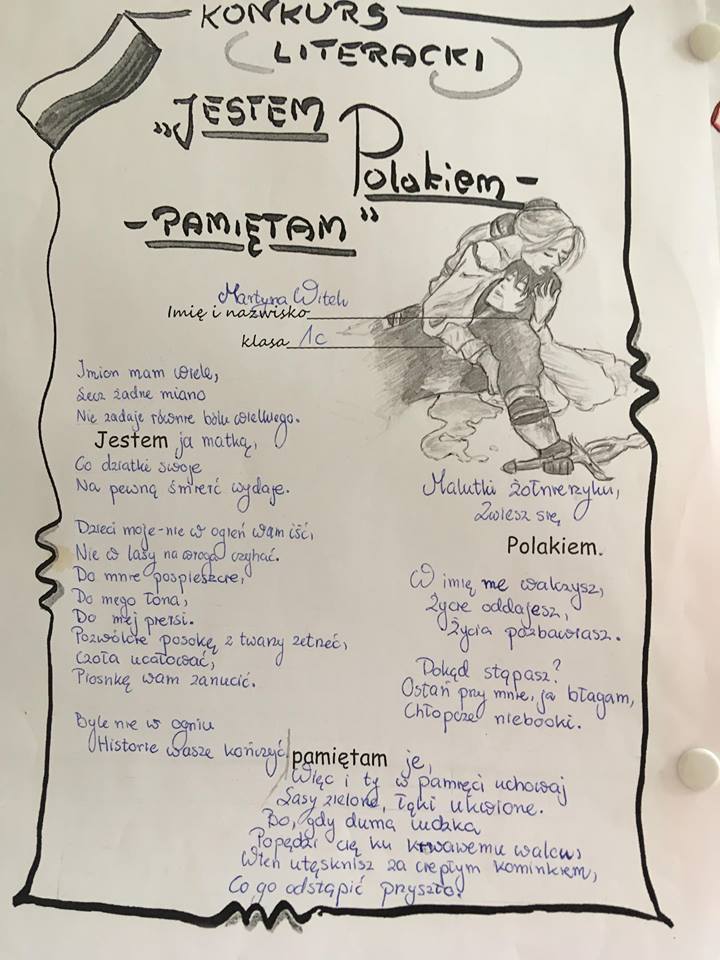 KONKURS
LITERACKI
„JESTEM
Polakiem -
- PAMIĘTAM”
Martyna Witek
Imię i nazwisko
klasa 1c
Imion mam wiele,
Lecz żadne miano
Nie zadaje równie bólu wielkiego.
Jestem ja matką,
Co dziatki swoje
Na pewną śmierć wydaje.
Dzieci moje - nie w ogień wam iść,
Nie w lasy na wroga czyhać.
Do mnie pospieszcie,
Do mego łona,
Do mej piersi.
Pozwólcie posokę z twarzy zetrzeć,
Czoła ucałować,
Piosnkę wam zanucić.
Byle nie w ogniu
Historie wasze kończyć
Malutki żołnierzyku,
Zwiesz się
Polakiem.
W imię me walczysz,
Życie oddajesz,
Życia pozbawiasz.
Dokąd stąpasz?
Ostań przy mnie, ja błagam,
Chłopcze niebooki.
pamiętam je,
Więc i ty w pamięci uchowaj
Lasy zielone, łąki ukwione.
Bo, gdy duma ludzka
Popędzi cię ku krwawemu walcu,
Wten utęsknisz za ciepłym kominkiem,
Co go odstąpić przyszło.